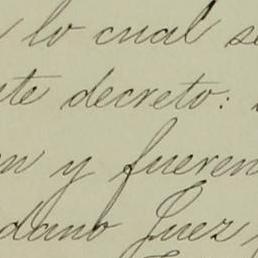 lo cual se
te decreto:
n y fueren
dano Juez